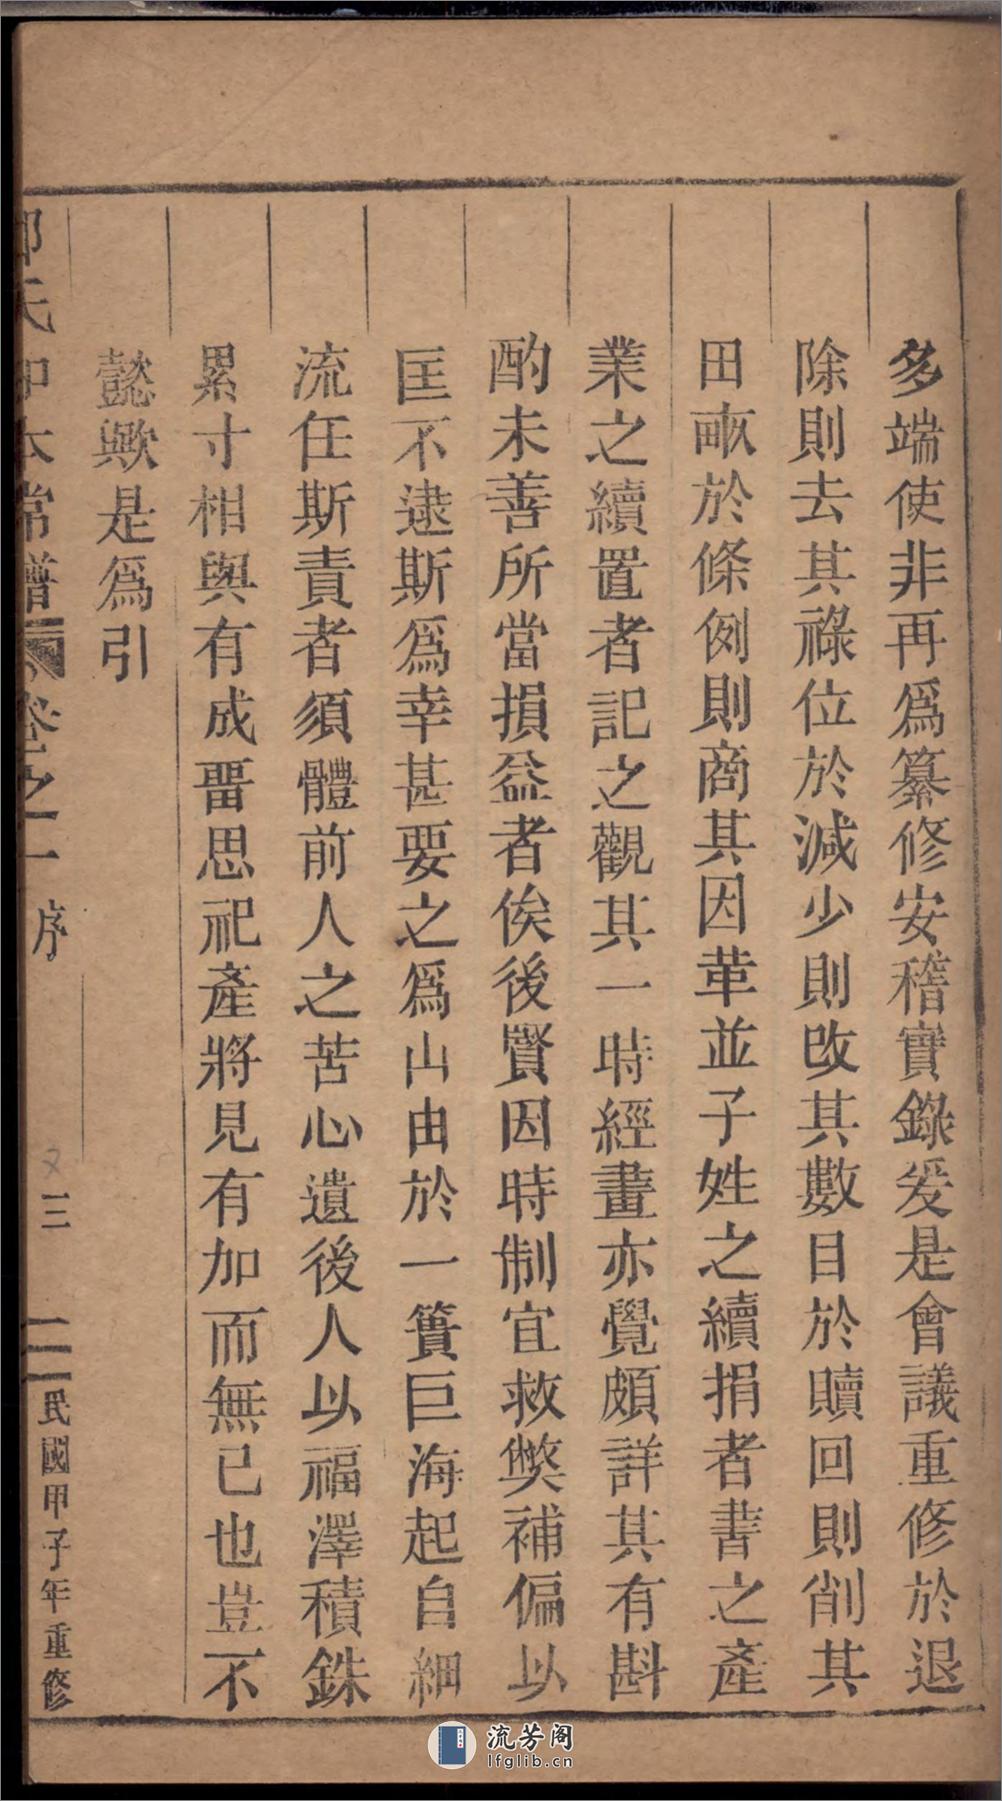 多端使非再爲纂修安稽實錄爰是會議重修於退
除則去其祿位於減少則改其數目於贖回則削其
田畝於條例則商其因革並子姓之續捐者書之產
業之續置者記之觀其一時經畫亦覺頗詳其有斟
酌未善所當損益者俟後賢因時制宜救獘補偏以
匡不逮斯爲幸甚要之爲山由於一簣巨海起自細
流任斯責者須體前人之苦心遺後人以福澤積銖
累寸相與有成畱思祀產將見有加而無已也豈不
懿歟是爲引
氏 本常譜 卷之一 序 三 民國甲子年重修
流芳阁
lfglib.cn